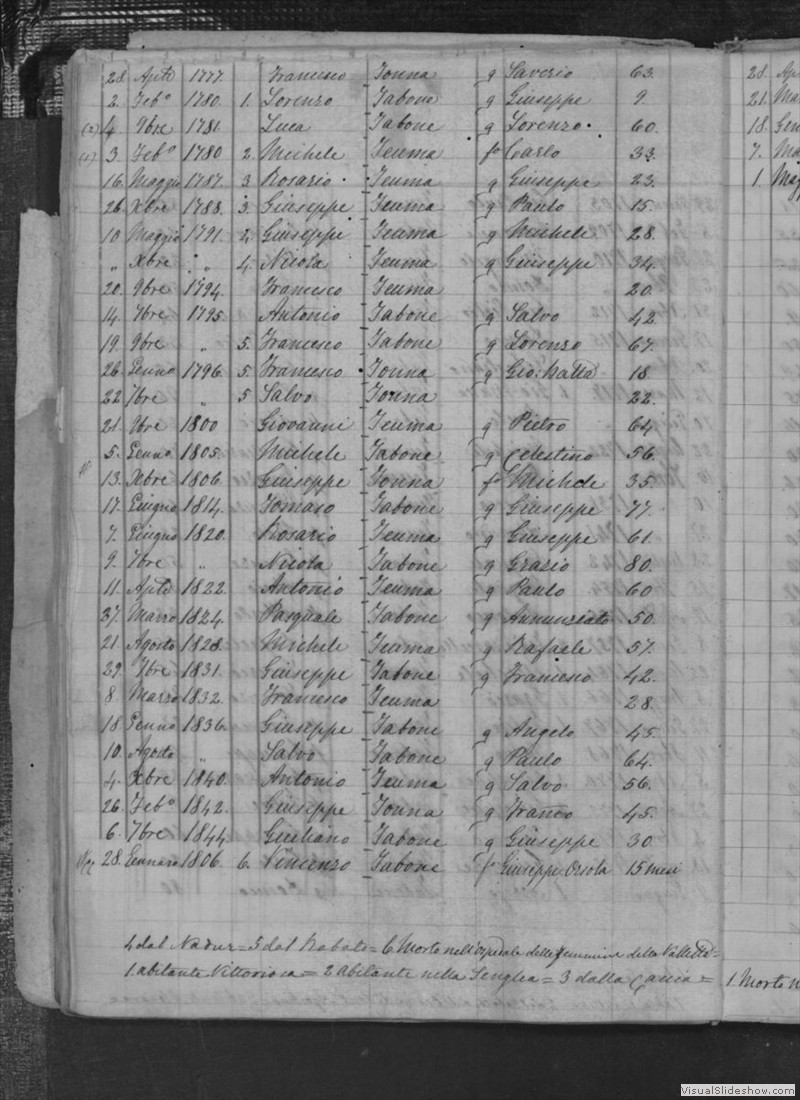 28. Aple 1777. Francesco Tonna g Saverio 63.
2. Feb° 1780. 1. Lorenzo Tabone g Giuseppe 9.
4. 9bre 1781. Luca Tabone g Lorenzo. 60.
3. Feb° 1780 2. Michele Teuma f° Carlo 33.
16. Maggio 1787. 3 Rosario Teuma g Giuseppe 23.
26. Xbre 1788. 3. Giuseppe Teuma g Paulo 15.
10 Maggio 1791. 2. Giuseppe Teuma g Michele 28.
" Xbre " 4. Nicola Teuma g Giuseppe 34.
20. 9bre 1794. Francesco Teuma 20.
14. 7bre 1795. Antonio Tabone g Salvo 42.
19. 9bre " 5. Francesco Tabone g Lorenzo 67.
26. Genno 1796. 5. Francesco Tonna g Gio: Batta 18
22 7bre " 5 Salvo Tonna 22.
21. 9bre 1800 Giovanni Teuma g Pietro 64
5. Genno 1805. Michele Tabone g Celestino 56.
13. Xbre 1806. Giuseppe Tonna f° Michele 35.
17. Giugno 1814. Tomaso Tabone g Giuseppe 77.
7. Giugno 1820. Rosario Teuma g Giuseppe 61.
9. 7bre " Nicola Tabone g Grazio 80.
11. Aple 1822. Antonio Teuma g Paulo 60
37. Marzo 1824. Pasquale Tabone g Annunziato 50.
21. Agosto 1828. Michele Teuma g Rafaele 57.
29. 7bre 1831. Giuseppe Tabone g Francesco 42.
8. Marzo 1832. Francesco Teuma 28.
18. Genno 1836. Giuseppe Tabone g Angelo 45.
10. Agosto " Salvo Tabone g Paulo 64.
4. Xbre 1840. Antonio Teuma g Salvo 56.
26. Feb° 1842. Giuseppe Tonna g Franco 45.
6. 7bre 1844. Giuliano Tabone g Giuseppe 30
28. Gennaro 1806. 6. Vincenzo Tabone f° Giuseppe Orsola 15 mesi
4 dal Nadur = 5 dal Rabato = 6 Morto nell'ospedale delle femmine della Valletta =
1 abitante Vittoriosa = 2 abitante nella Senglea = 3 dalla Caccia = 1. Morto n
28. Ap
21. Ma
18. Gen
7. Ma
1. Mag
VisualSlideshow.com